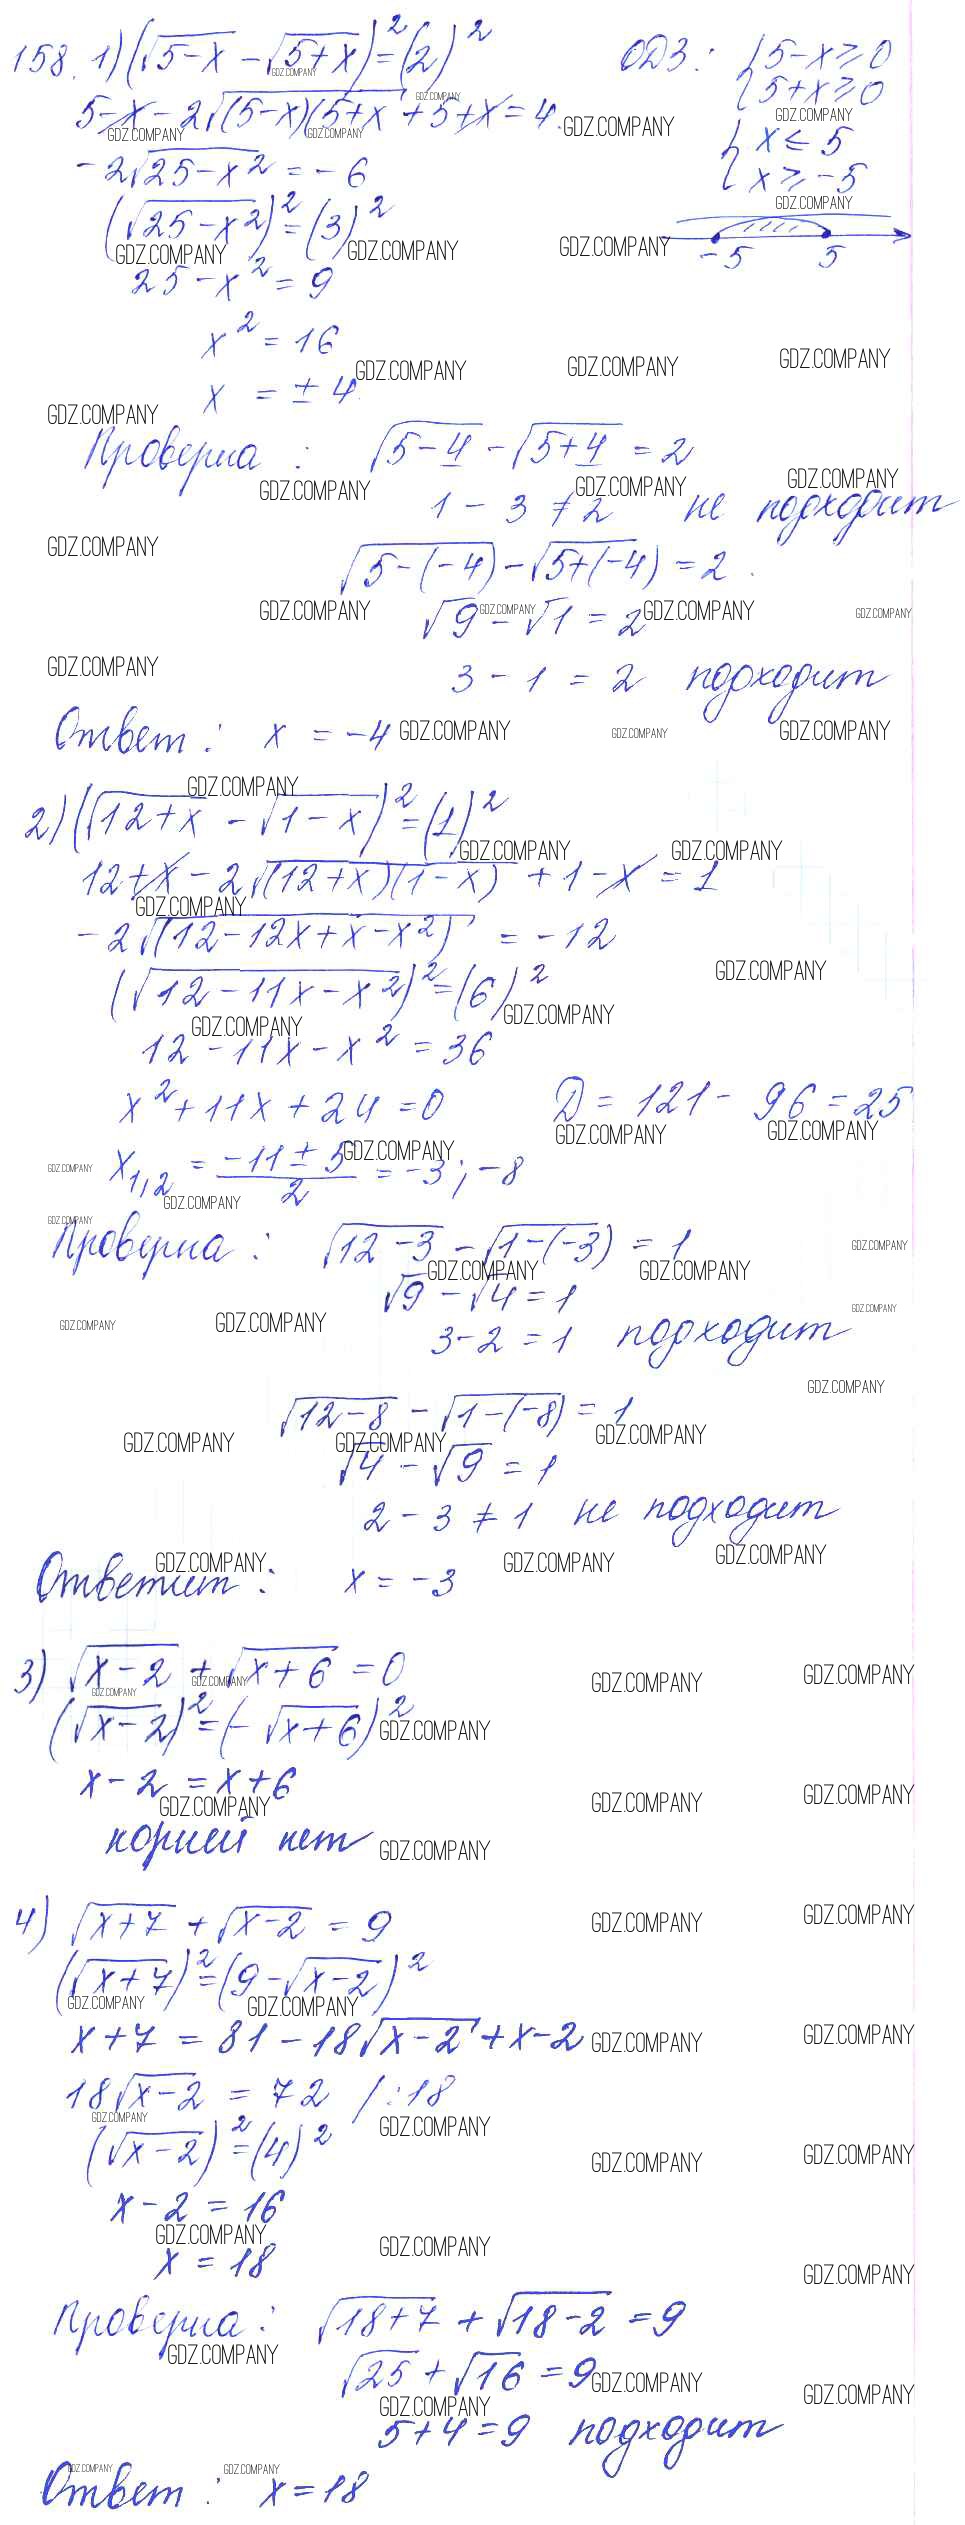 158. 1) (√5-x - √5+x)² = (2)² ОДЗ: { 5-x ≥ 0
{ 5+x ≥ 0
5-x - 2√(5-x)(5+x + 5+x = 4
{ x ≤ 5
-2√25-x² = -6
{ x ≥ -5
(√25-x²)² = (3)²
-5 5
25-x² = 9
x² = 16
x = ±4
Проверка: √5-4 - √5+4 = 2
1 - 3 ≠ 2 не подходит
√5-(-4) - √5+(-4) = 2
√9 - √1 = 2
3 - 1 = 2 подходит
Ответ: x = -4
2) (√12+x - √1-x)² = (1)²
12+x - 2√(12+x)(1-x) + 1-x = 1
-2√(12-12x+x-x²) = -12
(√12-11x-x²)² = (6)²
12-11x-x² = 36
x²+11x+24=0 D = 121- 96 = 25
x1,2 = -11±5/2 = -3; -8
Проверка: √12-3 - √1-(-3) = 1
√9 - √4 = 1
3-2 = 1 подходит
√12-8 - √1-(-8) = 1
√4 - √9 = 1
2 - 3 ≠ 1 не подходит
Ответит: x = -3
3) √x-2 + √x+6 = 0
(√x-2)² = (-√x+6)²
x-2 = x+6
корней нет
4) √x+7 + √x-2 = 9
(√x+7)² = (9-√x-2)²
x+7 = 81 - 18√x-2 + x-2
18√x-2 = 72 /:18
(√x-2)² = (4)²
x-2 = 16
x = 18
Проверка: √18+7 + √18-2 = 9
√25 + √16 = 9
5+4=9 подходит
Ответ: x=18
GDZ.COMPANY